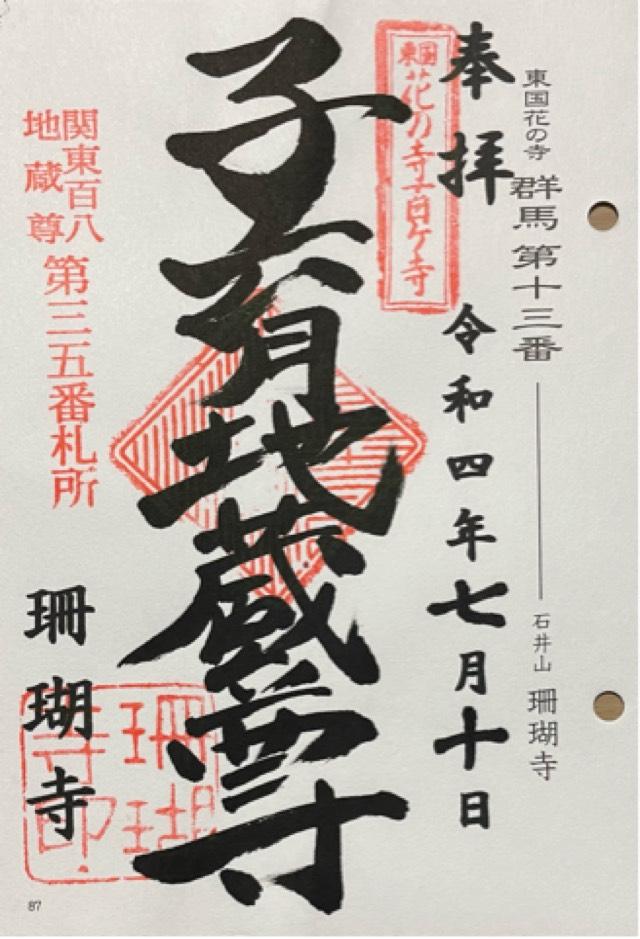 東国花の寺 群馬第十三番 石井山 珊瑚寺
奉拝 令和四年七月十日
東国花の寺百ケ寺
子育地蔵尊
関東百八
地蔵尊
第三五番札所
珊瑚寺
珊瑚
寺印
87